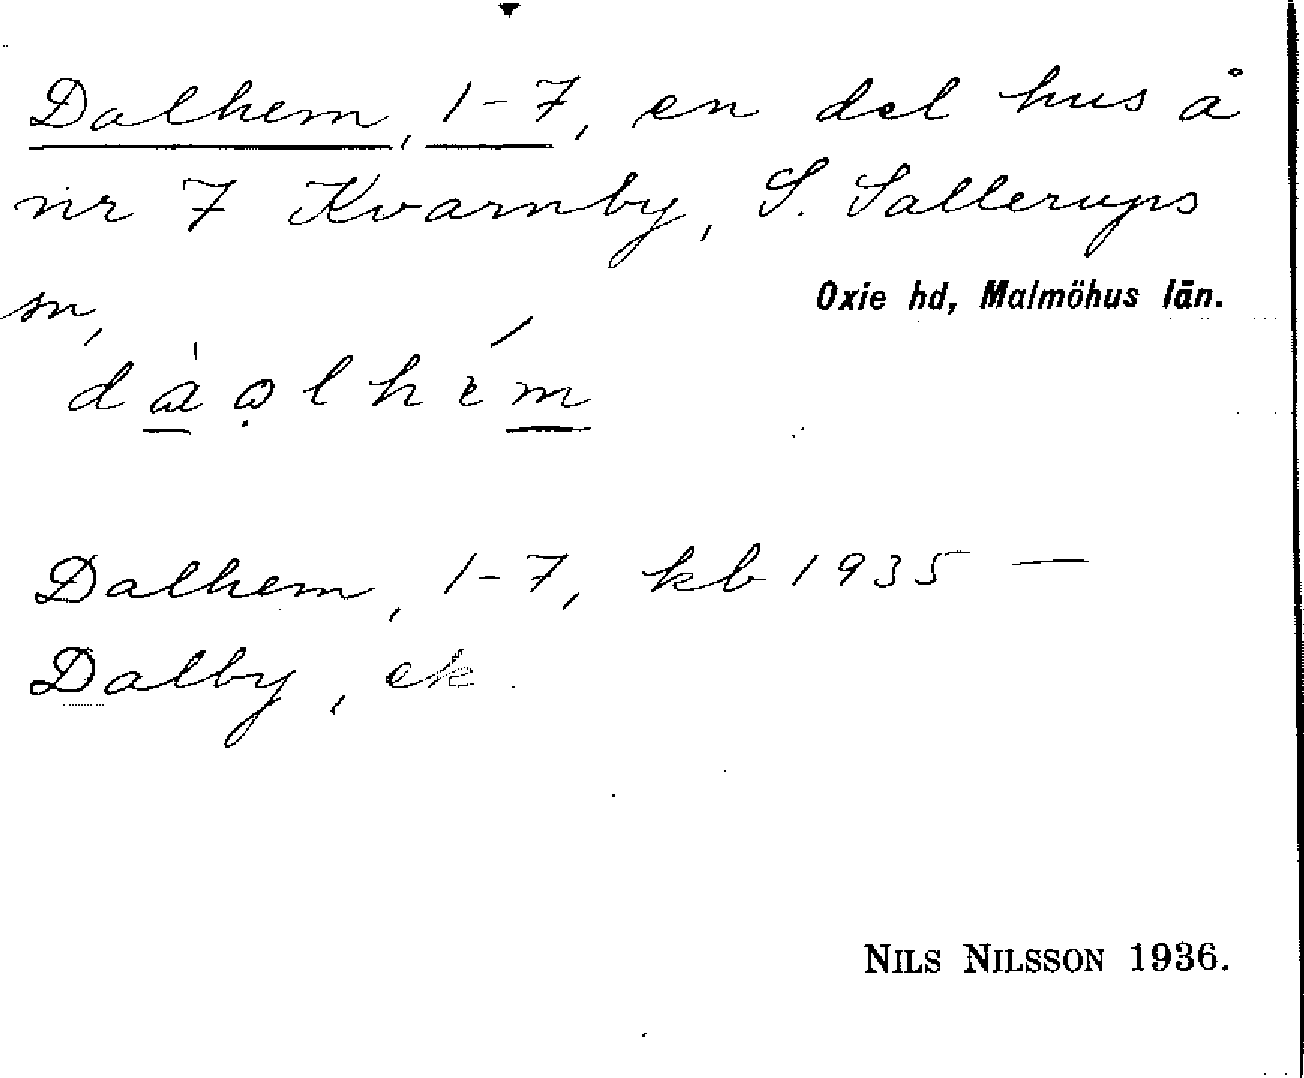 Dalhem, 1-7, en del hus å
nr 7 Kvarnby, S. Sallerups
sn,
Oxie hd, Malmöhus län.
Dalhem, 1-7, kb 1935 —
Dalby, ek.
NILS NILSSON 1936.